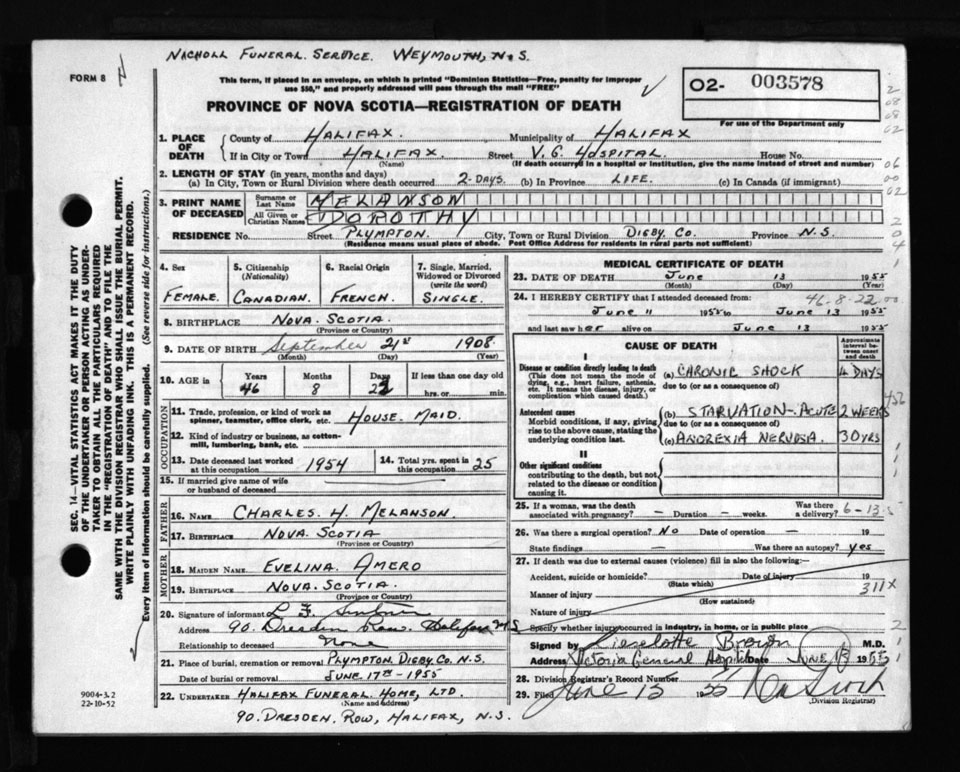 NACHOLL FUNERAL SERVICE. WEYMOUTH, N.S.
FORM 8
This form, if placed in an envelope, on which is printed "Dominion Statistics—Free, penalty for improper
use $50," and properly addressed will pass through the mail "FREE"
PROVINCE OF NOVA SCOTIA—REGISTRATION OF DEATH
O2- 003578
For use of the Department only
1. PLACE OF DEATH
County of HALIFAX. Municipality of HALIFAX
If in City or Town HALIFAX. Street V. G. HOSPITAL. House No.
(Name) (If death occurred in a hospital or institution, give the name instead of street and number)
2. LENGTH OF STAY (in years, months and days)
(a) In City, Town or Rural Division where death occurred 2-DAYS. (b) In Province LIFE. (c) In Canada (if immigrant)
3. PRINT NAME OF DECEASED
Surname or Last Name MELANSON
All Given or Christian Names DOROTHY
RESIDENCE No. Street PLYMPTON. City, Town or Rural Division DIGBY CO. Province N.S.
(Residence means usual place of abode. Post Office Address for residents in rural parts not sufficient)
4. Sex FEMALE.
5. Citizenship (Nationality) CANADIAN.
6. Racial Origin FRENCH.
7. Single, Married, Widowed or Divorced (write the word) SINGLE.
8. BIRTHPLACE NOVA SCOTIA.
(Province or Country)
9. DATE OF BIRTH September 21st 1908
(Month) (Day) (Year)
10. AGE in Years 46 Months 8 Days 22 If less than one day old hrs. or min.
OCCUPATION
11. Trade, profession, or kind of work as spinner, teamster, office clerk, etc. HOUSE MAID.
12. Kind of industry or business, as cotton-mill, lumbering, bank, etc.
13. Date deceased last worked at this occupation 1954
14. Total yrs. spent in this occupation 25
15. If married give name of wife or husband of deceased
FATHER
16. NAME CHARLES H. MELANSON
17. BIRTHPLACE NOVA SCOTIA
(Province or Country)
MOTHER
18. MAIDEN NAME EVELINA AMERO
19. BIRTHPLACE NOVA SCOTIA.
(Province or Country)
20. Signature of informant L. F.
Address 90. Dresden Row. Halifax N.S
Relationship to deceased None
21. Place of burial, cremation or removal PLYMPTON. DIGBY. CO. N.S.
Date of burial or removal JUNE. 17TH - 1955
22. UNDERTAKER HALIFAX FUNERAL. HOME, LTD.
(Name and Address)
90. DRESDEN. ROW, HALIFAX, N.S.
MEDICAL CERTIFICATE OF DEATH
23. DATE OF DEATH June 13 1955
(Month) (Day) (Year)
24. I HEREBY CERTIFY that I attended deceased from: 46-8-22
June 11 1955 to June 13 1955
and last saw her alive on June 13 1955
CAUSE OF DEATH
Approximate interval between onset and death
I
Disease or condition directly leading to death (a) CHRONIC SHOCK 4 DAYS
(This does not mean the mode of dying, e.g., heart failure, asthenia, etc. It means the disease, injury, or complication which caused death.)
due to (or as a consequence of)
Antecedent causes (b) STARVATION-ACUTE 2 WEEKS
Morbid conditions, if any, giving rise to the above cause, stating the underlying condition last.
due to (or as a consequence of)
(c) ANOREXIA NERVOSA. 30 YRS
II
Other significant conditions
contributing to the death, but not related to the disease or condition causing it.
25. If a woman, was the death associated with pregnancy? – Duration – weeks. Was there a delivery? 6-13-5
26. Was there a surgical operation? NO Date of operation — 19
State findings — Was there an autopsy? yes
27. If death was due to external causes (violence) fill in also the following:—
Accident, suicide or homicide? Date of injury 19
(State which)
Manner of injury 311X
(How sustained)
Nature of injury
Specify whether injury occurred in industry, in home, or in public place
Signed by Lieselotte Brown M.D.
Address Victoria General Hospital Date JUNE 13 1955
28. Division Registrar's Record Number
29. Filed June 15 1955
(Division Registrar)
9004-3.2
22-10-52
SEC. 14—VITAL STATISTICS ACT MAKES IT THE DUTY
OF THE UNDERTAKER OR PERSON ACTING AS UNDER-
TAKER TO OBTAIN ALL THE PARTICULARS REQUIRED
IN THE "REGISTRATION OF DEATH" AND TO FILE THE
SAME WITH THE DIVISION REGISTRAR WHO SHALL ISSUE THE BURIAL PERMIT.
WRITE PLAINLY WITH UNFADING INK. THIS IS A PERMANENT RECORD.
Every item of information should be carefully supplied. (See reverse side for instructions.)